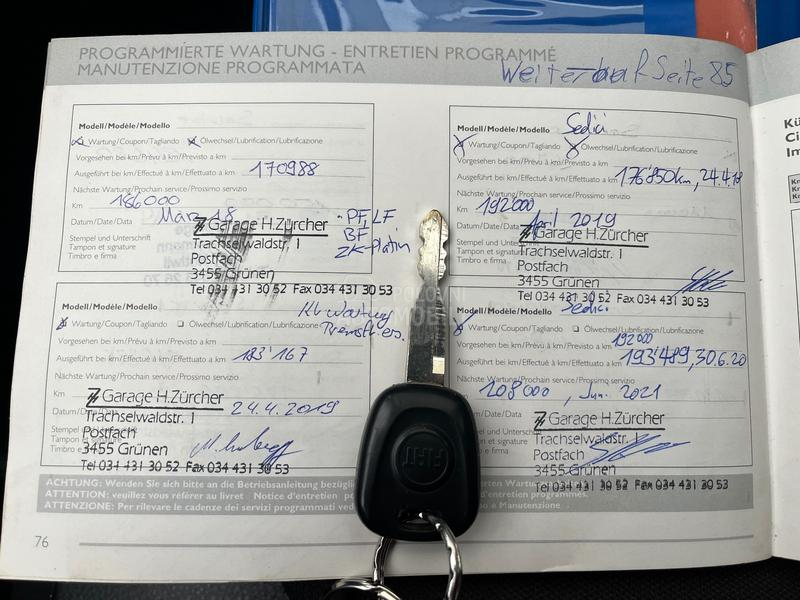 PROGRAMMIERTE WARTUNG - ENTRETIEN PROGRAMMÉ
MANUTENZIONE PROGRAMMATA
Weiter auf Seite 85
Modell/Modèle/Modello
Wartung/Coupon/Tagliando Ölwechsel/Lubrification/Lubrificazione
Vorgesehen bei km/Prévu à km/Previsto a km
Ausgeführt bei km/Effectué à km/Effettuato a km 170988
Nächste Wartung/Prochain service/Prossimo servizio
Km 186000
Datum/Date/Data März 18
Stempel und Unterschrift
Tampon et signature
Timbro e firma
Garage H.Zürcher
Trachselwaldstr. 1
Postfach
3455 Grünen
Tel 034 431 30 52 Fax 034 431 30 53
PF, LF
BF
ZK-Platin
Modell/Modèle/Modello Sedici
Wartung/Coupon/Tagliando Ölwechsel/Lubrification/Lubrificazione
Vorgesehen bei km/Prévu à km/Previsto a km
Ausgeführt bei km/Effectué à km/Effettuato a km 176'850km, 24.4.18
Nächste Wartung/Prochain service/Prossimo servizio
Km 192000
Datum/Date/Data April 2019
Stempel und Unterschrift
Tampon et signature
Timbro e firma
Garage H.Zürcher
Trachselwaldstr. 1
Postfach
3455 Grünen
Tel 034 431 30 52 Fax 034 431 30 53
Modell/Modèle/Modello
Wartung/Coupon/Tagliando Ölwechsel/Lubrification/Lubrificazione
Vorgesehen bei km/Prévu à km/Previsto a km
Ausgeführt bei km/Effectué à km/Effettuato a km 183'167
Nächste Wartung/Prochain service/Prossimo servizio
Km
Datum/Date/Data 24.4.2019
Garage H.Zürcher
Trachselwaldstr. 1
Postfach
3455 Grünen
Tel 034 431 30 52 Fax 034 431 30 53
Modell/Modèle/Modello Sedici
Wartung/Coupon/Tagliando Ölwechsel/Lubrification/Lubrificazione
Vorgesehen bei km/Prévu à km/Previsto a km 192000
Ausgeführt bei km/Effectué à km/Effettuato a km 193'489, 30.6.20
Nächste Wartung/Prochain service/Prossimo servizio
208000, Jun. 2021
Garage H.Zürcher
Trachselwaldstr. 1
Postfach
3455 Grünen
Tel 034 431 30 52 Fax 034 431 30 53
ACHTUNG: Wenden Sie sich bitte an die Betriebsanleitung
ATTENTION: veuillez vous référer au livret Notice d'entretien
ATTENZIONE: Per rilevare le cadenze dei servizi programmati
76
FIAT